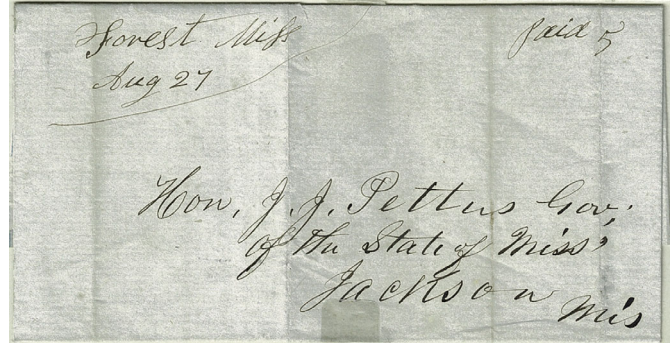 Forest Miss
Aug 27
Paid 5
Hon, J. J. Pettus Gov;
of the State of Miss,
Jackson
Mis